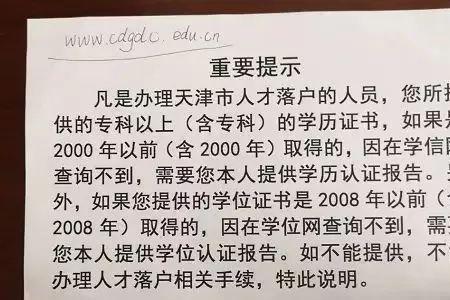 www.cdgdc.edu.cn
重要提示
凡是办理天津市人才落户的人员，您所
供的专科以上（含专科）的学历证书，如果
2000 年以前（含 2000 年）取得的，因在学信
查询不到，需要您本人提供学历认证报告。
外，如果您提供的学位证书是 2008 年以前（
2008 年）取得的，因在学位网查询不到，需
您本人提供学位认证报告。如不能提供，不
办理人才落户相关手续，特此说明。